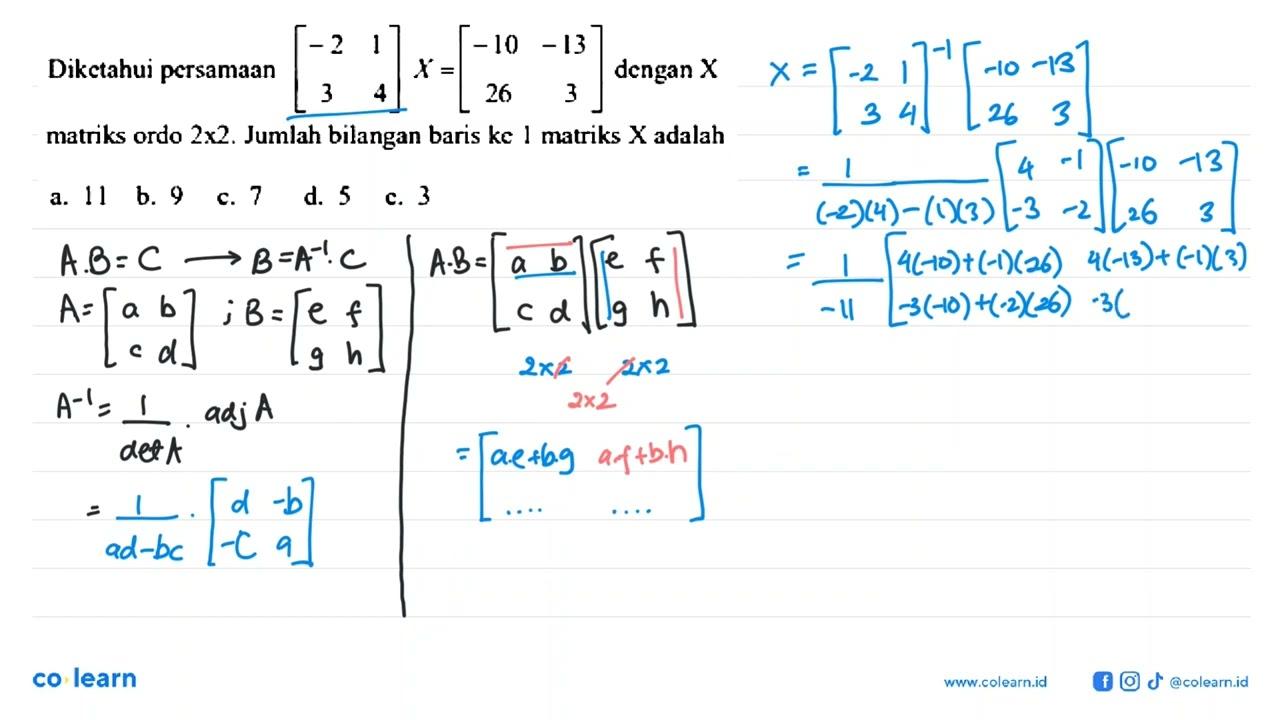 Diketahui persamaan [-2 1; 3 4] X = [-10 -13; 26 3] dengan X
matriks ordo 2x2. Jumlah bilangan baris ke 1 matriks X adalah
a. 11 b. 9 c. 7 d. 5 e. 3
A.B = C → B = A⁻¹. C
A = [a b; c d] ; B = [e f; g h]
A⁻¹ = 1/det A . adj A
= 1/ad-bc . [d -b; -c a]
A.B = [a b; c d] [e f; g h]
2x2 2x2
2x2
= [a.e+b.g a.f+b.h; .... ....]
X = [-2 1; 3 4]⁻¹ [-10 -13; 26 3]
= 1/(-2)(4)-(1)(3) [4 -1; -3 -2] [-10 -13; 26 3]
= 1/-11 [4(-10)+(-1)(26) 4(-13)+(-1)(3); -3(-10)+(-2)(26) -3(
co learn
www.colearn.id
@colearn.id